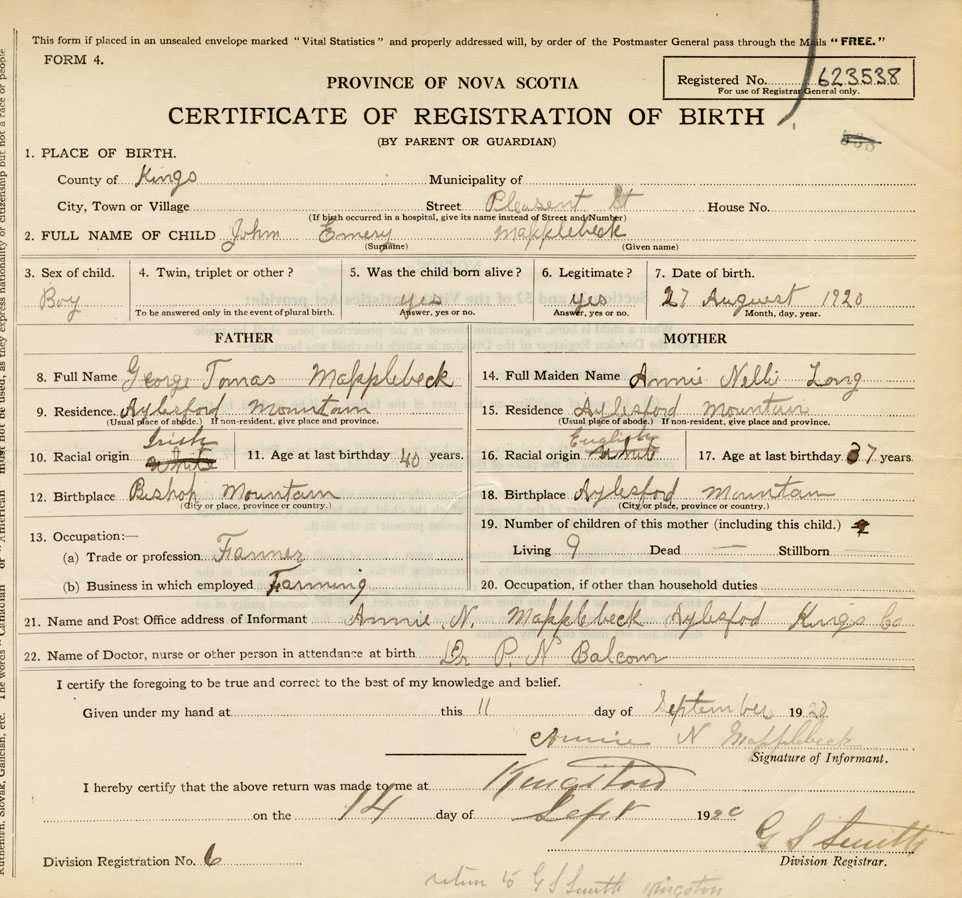 This form if placed in an unsealed envelope marked "Vital Statistics" and properly addressed will, by order of the Postmaster General pass through the Mails "FREE."
FORM 4.
Registered No. 623538
For use of Registrar General only.
PROVINCE OF NOVA SCOTIA
CERTIFICATE OF REGISTRATION OF BIRTH
(BY PARENT OR GUARDIAN)
1. PLACE OF BIRTH.
County of Kings Municipality of
City, Town or Village Street Pleasent St House No.
(If birth occurred in a hospital, give its name instead of Street and Number)
2. FULL NAME OF CHILD John Emery Mapplebeck
(Surname) (Given name)
3. Sex of child. 4. Twin, triplet or other? 5. Was the child born alive? 6. Legitimate? 7. Date of birth.
Boy yes yes 27 August 1920
To be answered only in the event of plural birth. Answer, yes or no. Answer, yes or no. Month, day, year.
FATHER MOTHER
8. Full Name George Tomas Mapplebeck 14. Full Maiden Name Annie Nelli Long
9. Residence Aylesford Mountain 15. Residence Aylesford Mountain
(Usual place of abode.) If non-resident, give place and province. (Usual place of abode.) If non-resident, give place and province.
Irish English
10. Racial origin white 11. Age at last birthday 40 years. 16. Racial origin white 17. Age at last birthday 37 years
12. Birthplace Bishop Mountain 18. Birthplace Aylesford Mountan
(City or place, province or country.) (City or place, province or country.)
19. Number of children of this mother (including this child.)
13. Occupation:—
(a) Trade or profession Farmer Living 9 Dead — Stillborn
(b) Business in which employed Farming 20. Occupation, if other than household duties
21. Name and Post Office address of Informant Annie. N. Mapplebeck Aylesford Kings Co
22. Name of Doctor, nurse or other person in attendance at birth Dr P. N Balcom
I certify the foregoing to be true and correct to the best of my knowledge and belief.
Given under my hand at this 11 day of September 1920
Annie N Mapplebeck
Signature of Informant.
I hereby certify that the above return was made to me at Kingston
on the 14 day of Sept 1920
G S Smith
Division Registration No. 6 Division Registrar.
return to G S Smith Kingston